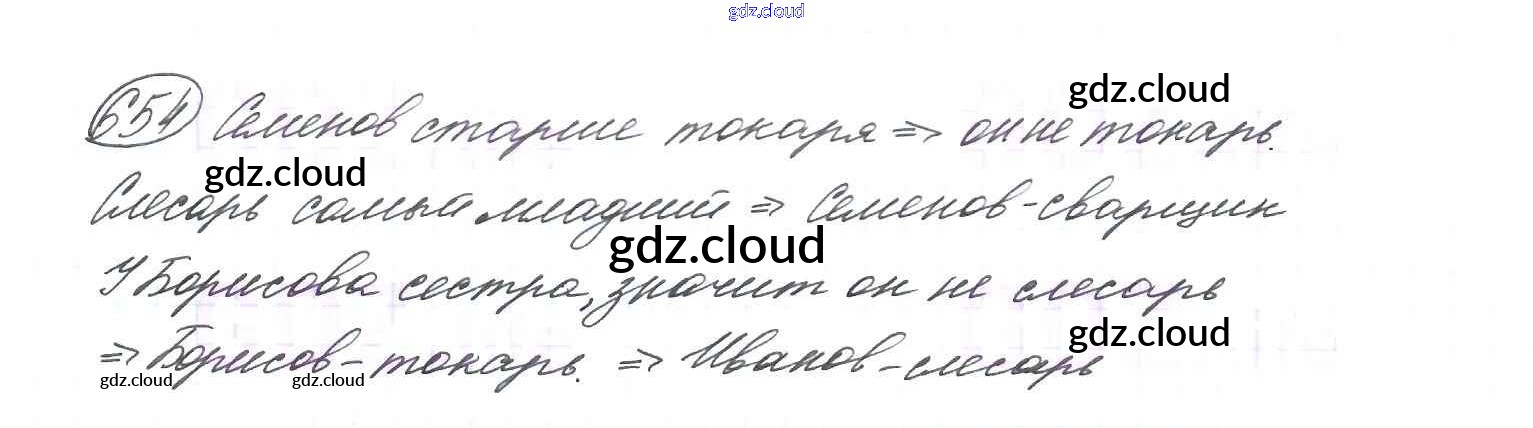 gdz.cloud
gdz.cloud
654 Семенов старше токаря => он не токарь.
gdz.cloud
Слесарь самый младший => Семенов-сварщик
gdz.cloud
У Борисова сестра, значит он не слесарь
gdz.cloud
=> Борисов-токарь. => Иванов-слесарь
gdz.cloud gdz.cloud